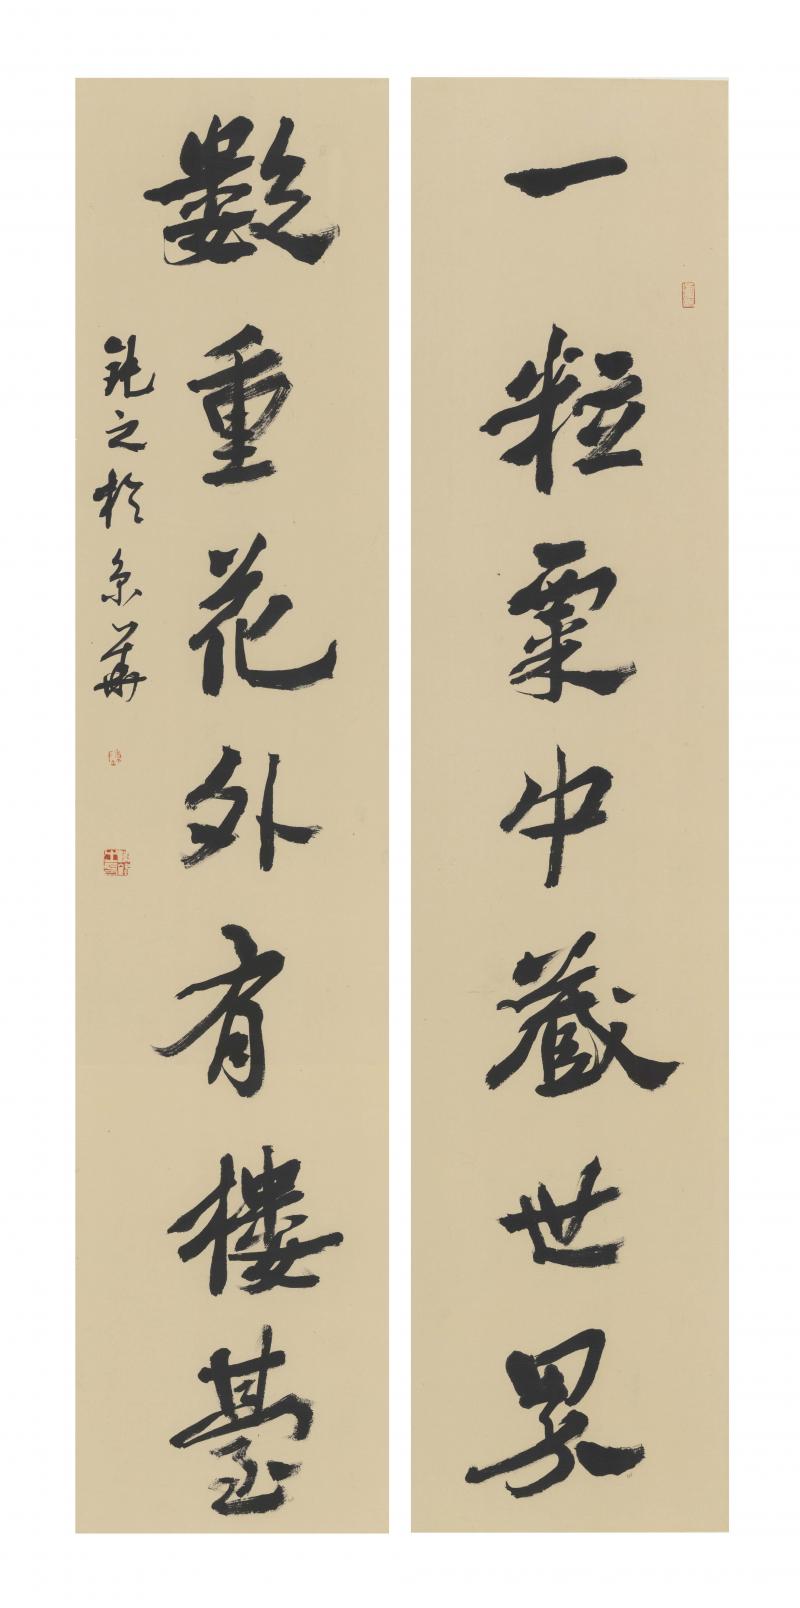 一粒粟中藏世界
數重花外有樓臺
鈍之於京華